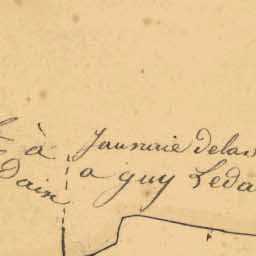 à Jaunaie delas
Dain a guy Leda